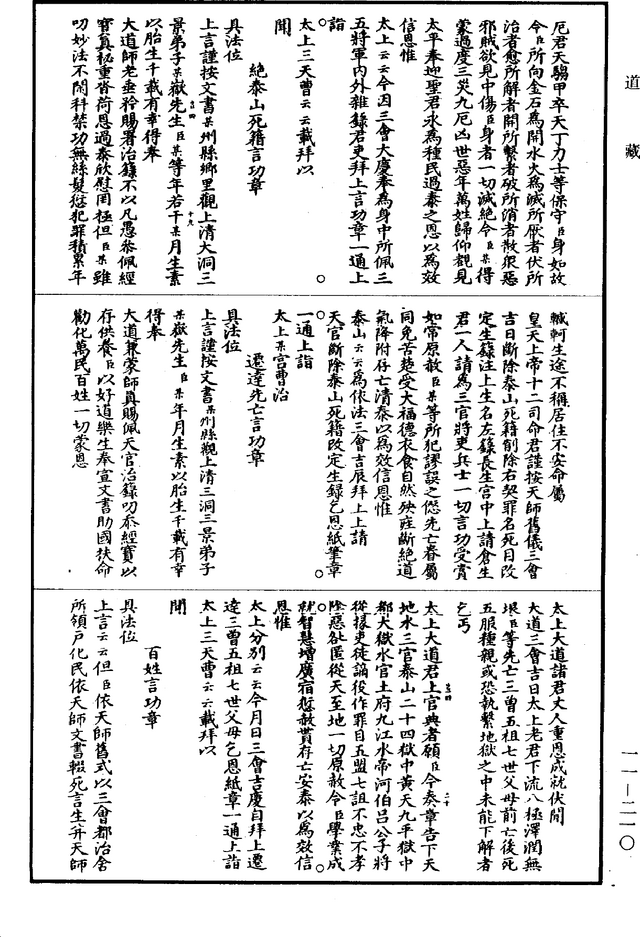 道藏
厄君天騶甲卒天丁力士等保守臣身如故
今臣所向金石爲開水火爲滅所厭者伏所
治者愈所解者開所繫者破所消者散衆惡
邪賊欲見中傷臣身者一切滅絶令臣某得
蒙過度三災九厄凶世惡年萬姓歸仰覩見
太平奉迎聖君永爲種民過泰之恩以爲效
信恩惟
太上云云今因三會大慶奉爲身中所佩三
五將軍内外雜籙君吏拜上言功章一通上
詣
太上三天曹云云載拜以
聞
絶泰山死籍言功章
具法位
上言謹按文書某州縣鄉里觀上清大洞三
景弟子某嶽先生臣某等年若干某月生素
以胎生千載有幸得奉
大道師老垂矜賜署治籙不以凡愚忝佩經
寶真秘重沓荷恩過泰欣慰罔極但臣某雖
叨妙法不閑科禁功無絲髮愆犯罪積累年
轗軻生途不稱居住不安命屬
皇天上帝十二司命君謹按天師舊儀三會
吉日斷除泰山死籍削除右契罪名死目改
定生籙注上生名左籙長生宫中上請倉生
君一人請爲三官將吏兵士一切言功受賞
如常原赦臣某等所犯謬誤之傑先亡眷屬
同免苦楚受大福德衣食自然殃疰斷絶道
氣降附存亡清泰以爲效信恩惟
泰山云云爲依法三會吉辰拜上上請
天官斷除泰山死籍改定生録乞恩紙筆章
一通上詣
太上某宫曹治
遷達先亡言功章
具法位
上言謹按文書某州縣觀上清三洞三景弟子
某嶽先生臣某年月生素以胎生千載有幸
得奉
大道兼蒙師真賜佩天官治籙叨忝經寶以
存供養臣以好道樂生奉宣文書助國扶命
勸化萬民百姓一切蒙恩
太上大道諸君丈人重恩成就伏聞
大道三會吉日太上老君下流八極澤潤無
垠臣等先亡三曾五祖七世父母前亡後死
五服種親或恐執繫地獄之中未能下解者
乞丐
太上大道君上官典者願臣今奏章告下天
地水三官泰山二十四獄中黄天九平獄中
都大獄水官土府九江水帝河伯吕公子將
從掾吏徒讁役作罪目五盟七詛不忠不孝
陰惡訟匿從天至地一切原赦令臣學業成
就智慧增廣宿愆赦貰存亡安泰以爲效信
恩惟
太上分别云云今月日三會吉慶自拜上遷
達三曾五祖七世父母乞恩紙章一通上詣
太上三天曹云云載拜以
聞
百姓言功章
具法位
上言云云但臣依天師舊式以三會都治舍
所領户化民依天師文書輟死言生升天師
一一—二一〇